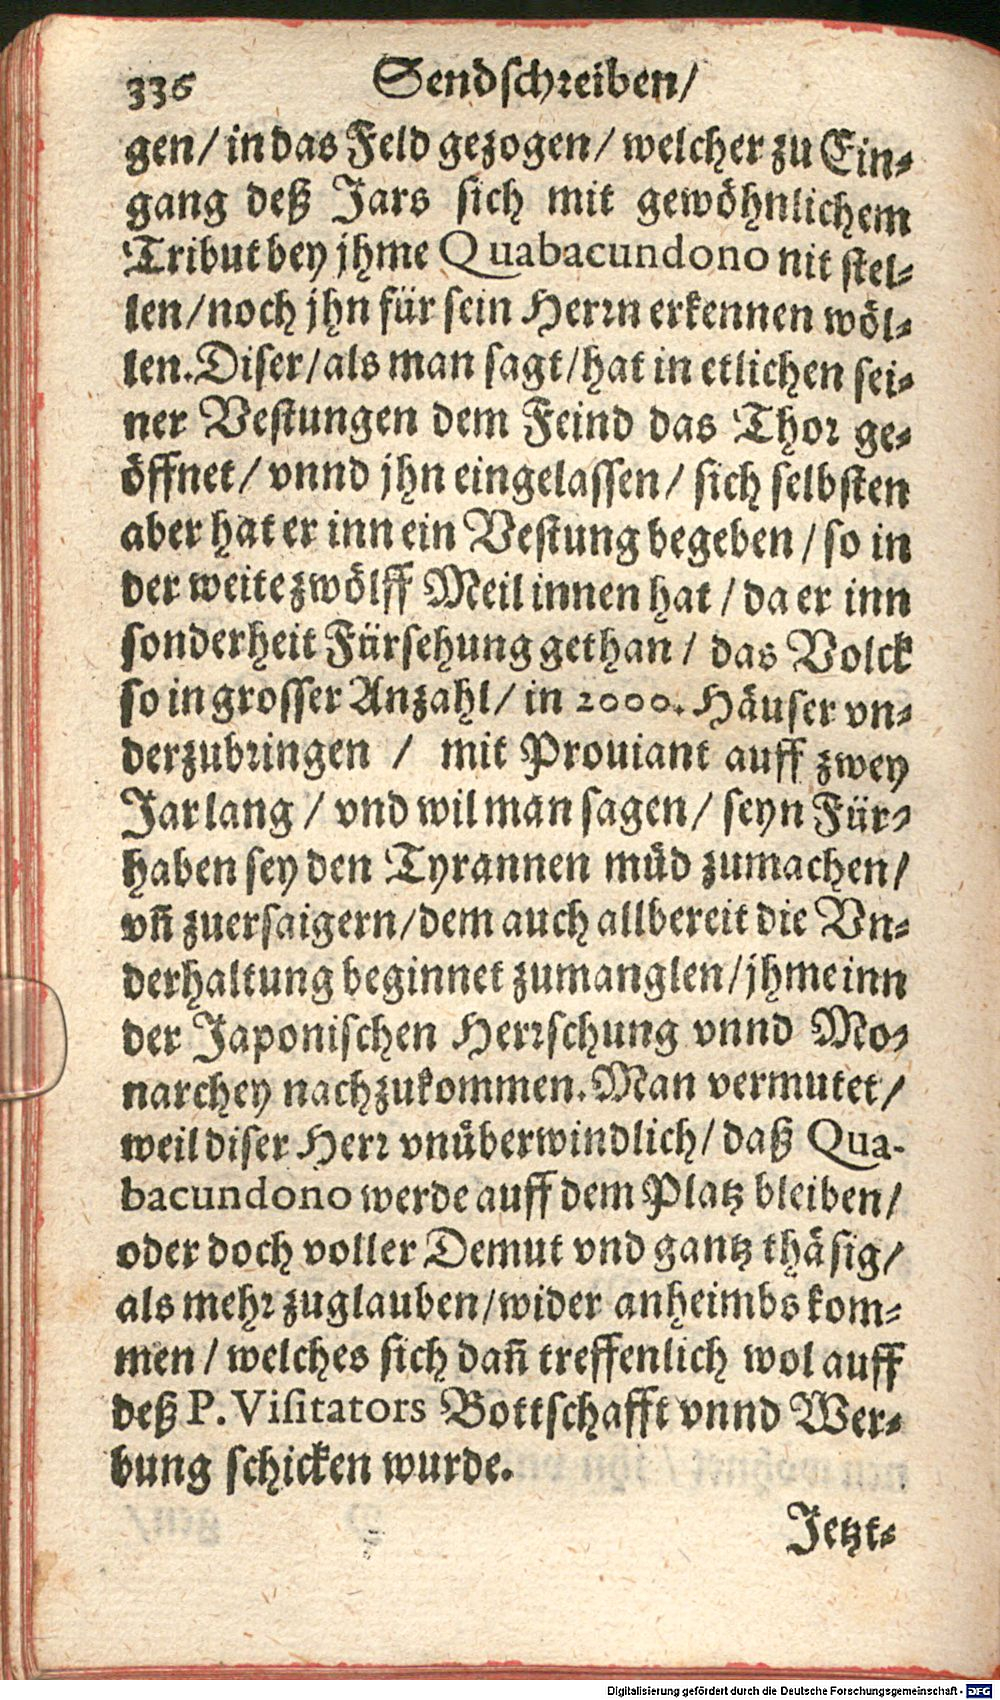 336 Sendschreiben/
gen/ in das Feld gezogen/ welcher zu Ein-
gang deß Jars sich mit gewöhnlichem
Tribut bey jhme Quabacundono nit stel-
len/ noch jhn für sein Herrn erkennen wöl-
len. Diser/ als man sagt/ hat in etlichen sei-
ner Vestungen dem Feind das Thor ge-
öffnet/ vnnd jhn eingelassen/ sich selbsten
aber hat er inn ein Vestung begeben/ so in
der weite zwölff Meil innen hat/ da er inn
sonderheit Fürsehung gethan/ das Volck
so in grosser Anzahl/ in 2000. Häuser vn-
derzubringen / mit Prouiant auff zwey
Jar lang / vnd wil man sagen/ seyn Für-
haben sey den Tyrannen müd zumachen/
vñ zuersaigern/ dem auch allbereit die Vn-
derhaltung beginnet zumanglen/ jhme inn
der Japonischen Herrschung vnnd Mo-
narchey nachzukommen. Man vermutet/
weil diser Herr vnüberwindlich/ daß Qua-
bacundono werde auff dem Platz bleiben/
oder doch voller Demut vnd gantz thäsig/
als mehr zuglauben/ wider anheimbs kom-
men/ welches sich dañ treffenlich wol auff
deß P. Visitators Bottschafft vnnd Wer-
bung schicken wurde.
Jetzt-
Digitalisierung gefördert durch die Deutsche Forschungsgemeinschaft - DFG